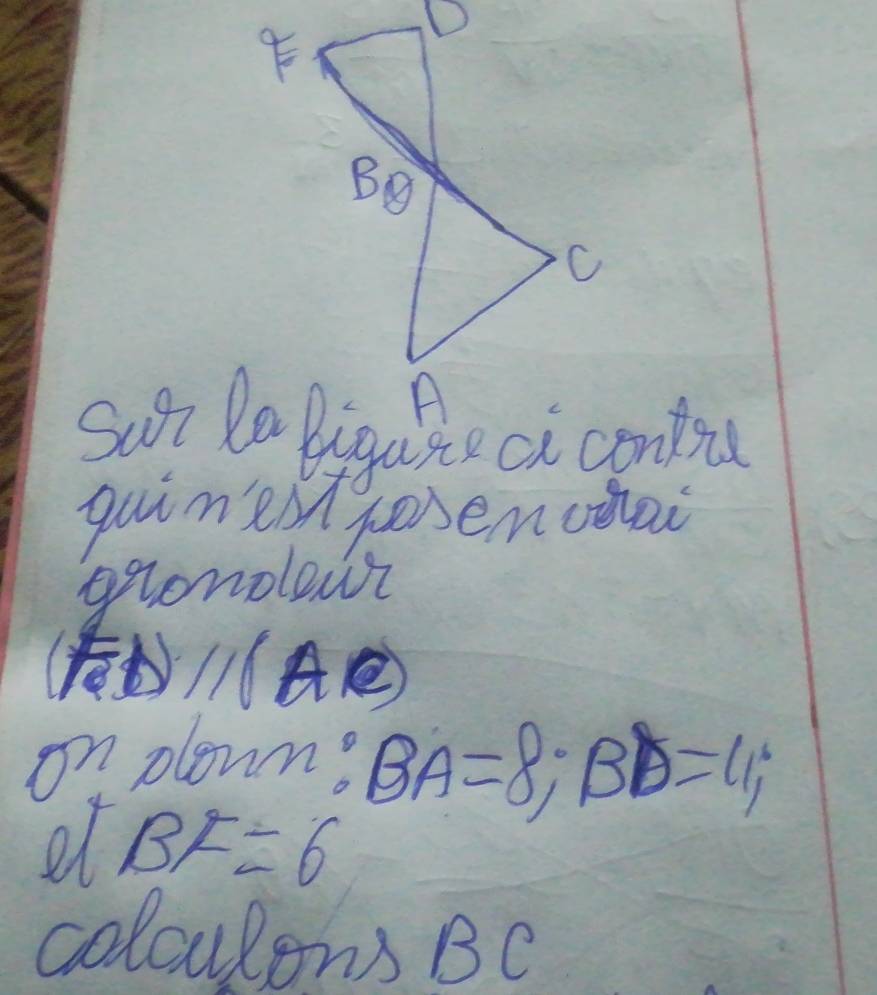 D
F
B
C
A
Sur la figure ci contre
qui n'est pas en vrai
grandeur
(FD) // (AC)
on donn : BA=8; BD=4;
et BF=6
calculons BC